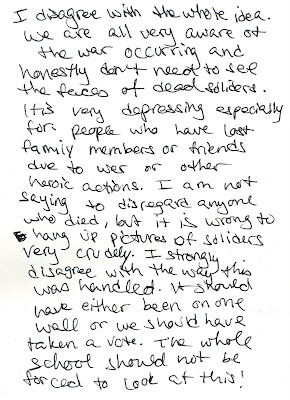 I disagree with the whole idea.
We are all very aware of
the war occurring and
honestly don't need to see
the faces of dead soliders.
It is very depressing especially
for people who have lost
family members or friends
due to war or other
heroic actions. I am not
saying to disregard anyone
who died, but it is wrong to
hang up pictures of soliders
very crudely. I strongly
disagree with the way this
was handled. It should
have either been on one
wall or we should have
taken a vote. The whole
school should not be
forced to look at this!